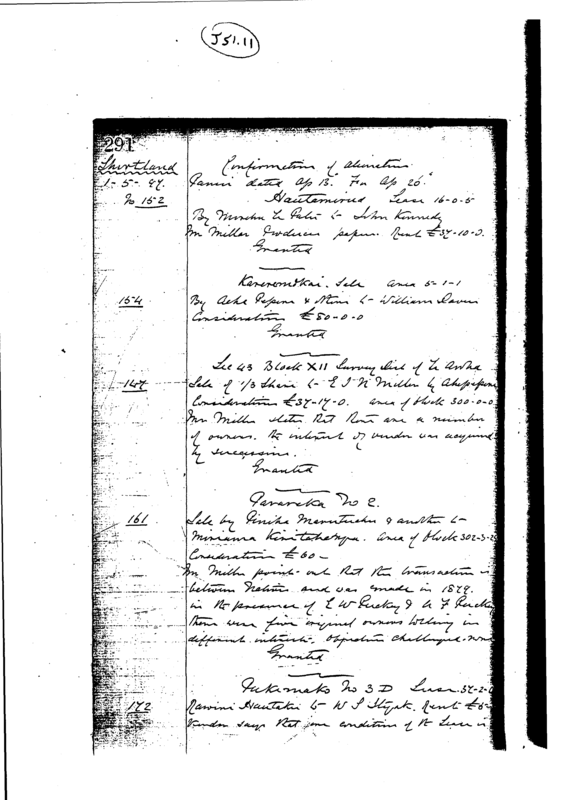 J51.11
291
Shortland
1-5-97.
Confirmation of Alienations
Panui dated Ap 13. For Ap 26.
No 152
Lease 16-0-5
By to John Kennedy
Mr Miller Produces papers. Rent £37-10-0.
Granted
Sale area 5-1-1
154
By Aeha & to William
Consideration £50-0-0
Granted
Sec 43 Block XII Survey Dist of Te Aroha
147
Sale of 1/3 Share to E J N Miller by
Consideration £37-17-0. area of block 300-0-0
Mr Miller states that there are a number
of owners. the interest of vendor was acquired
by succession.
Granted
No 2.
161
Sale by & another to
Miriama area of block 302-3-
Consideration £60-
Mr Miller points out that this transaction is
between Natives and was made in 1879.
in the presence of E W Puckey &
there were five original owners
different interests. Objection challenged. none
Granted
No 3 D Lease 37-2-
172
to W S Rent £6-
Vendor says that one condition of the Lease is